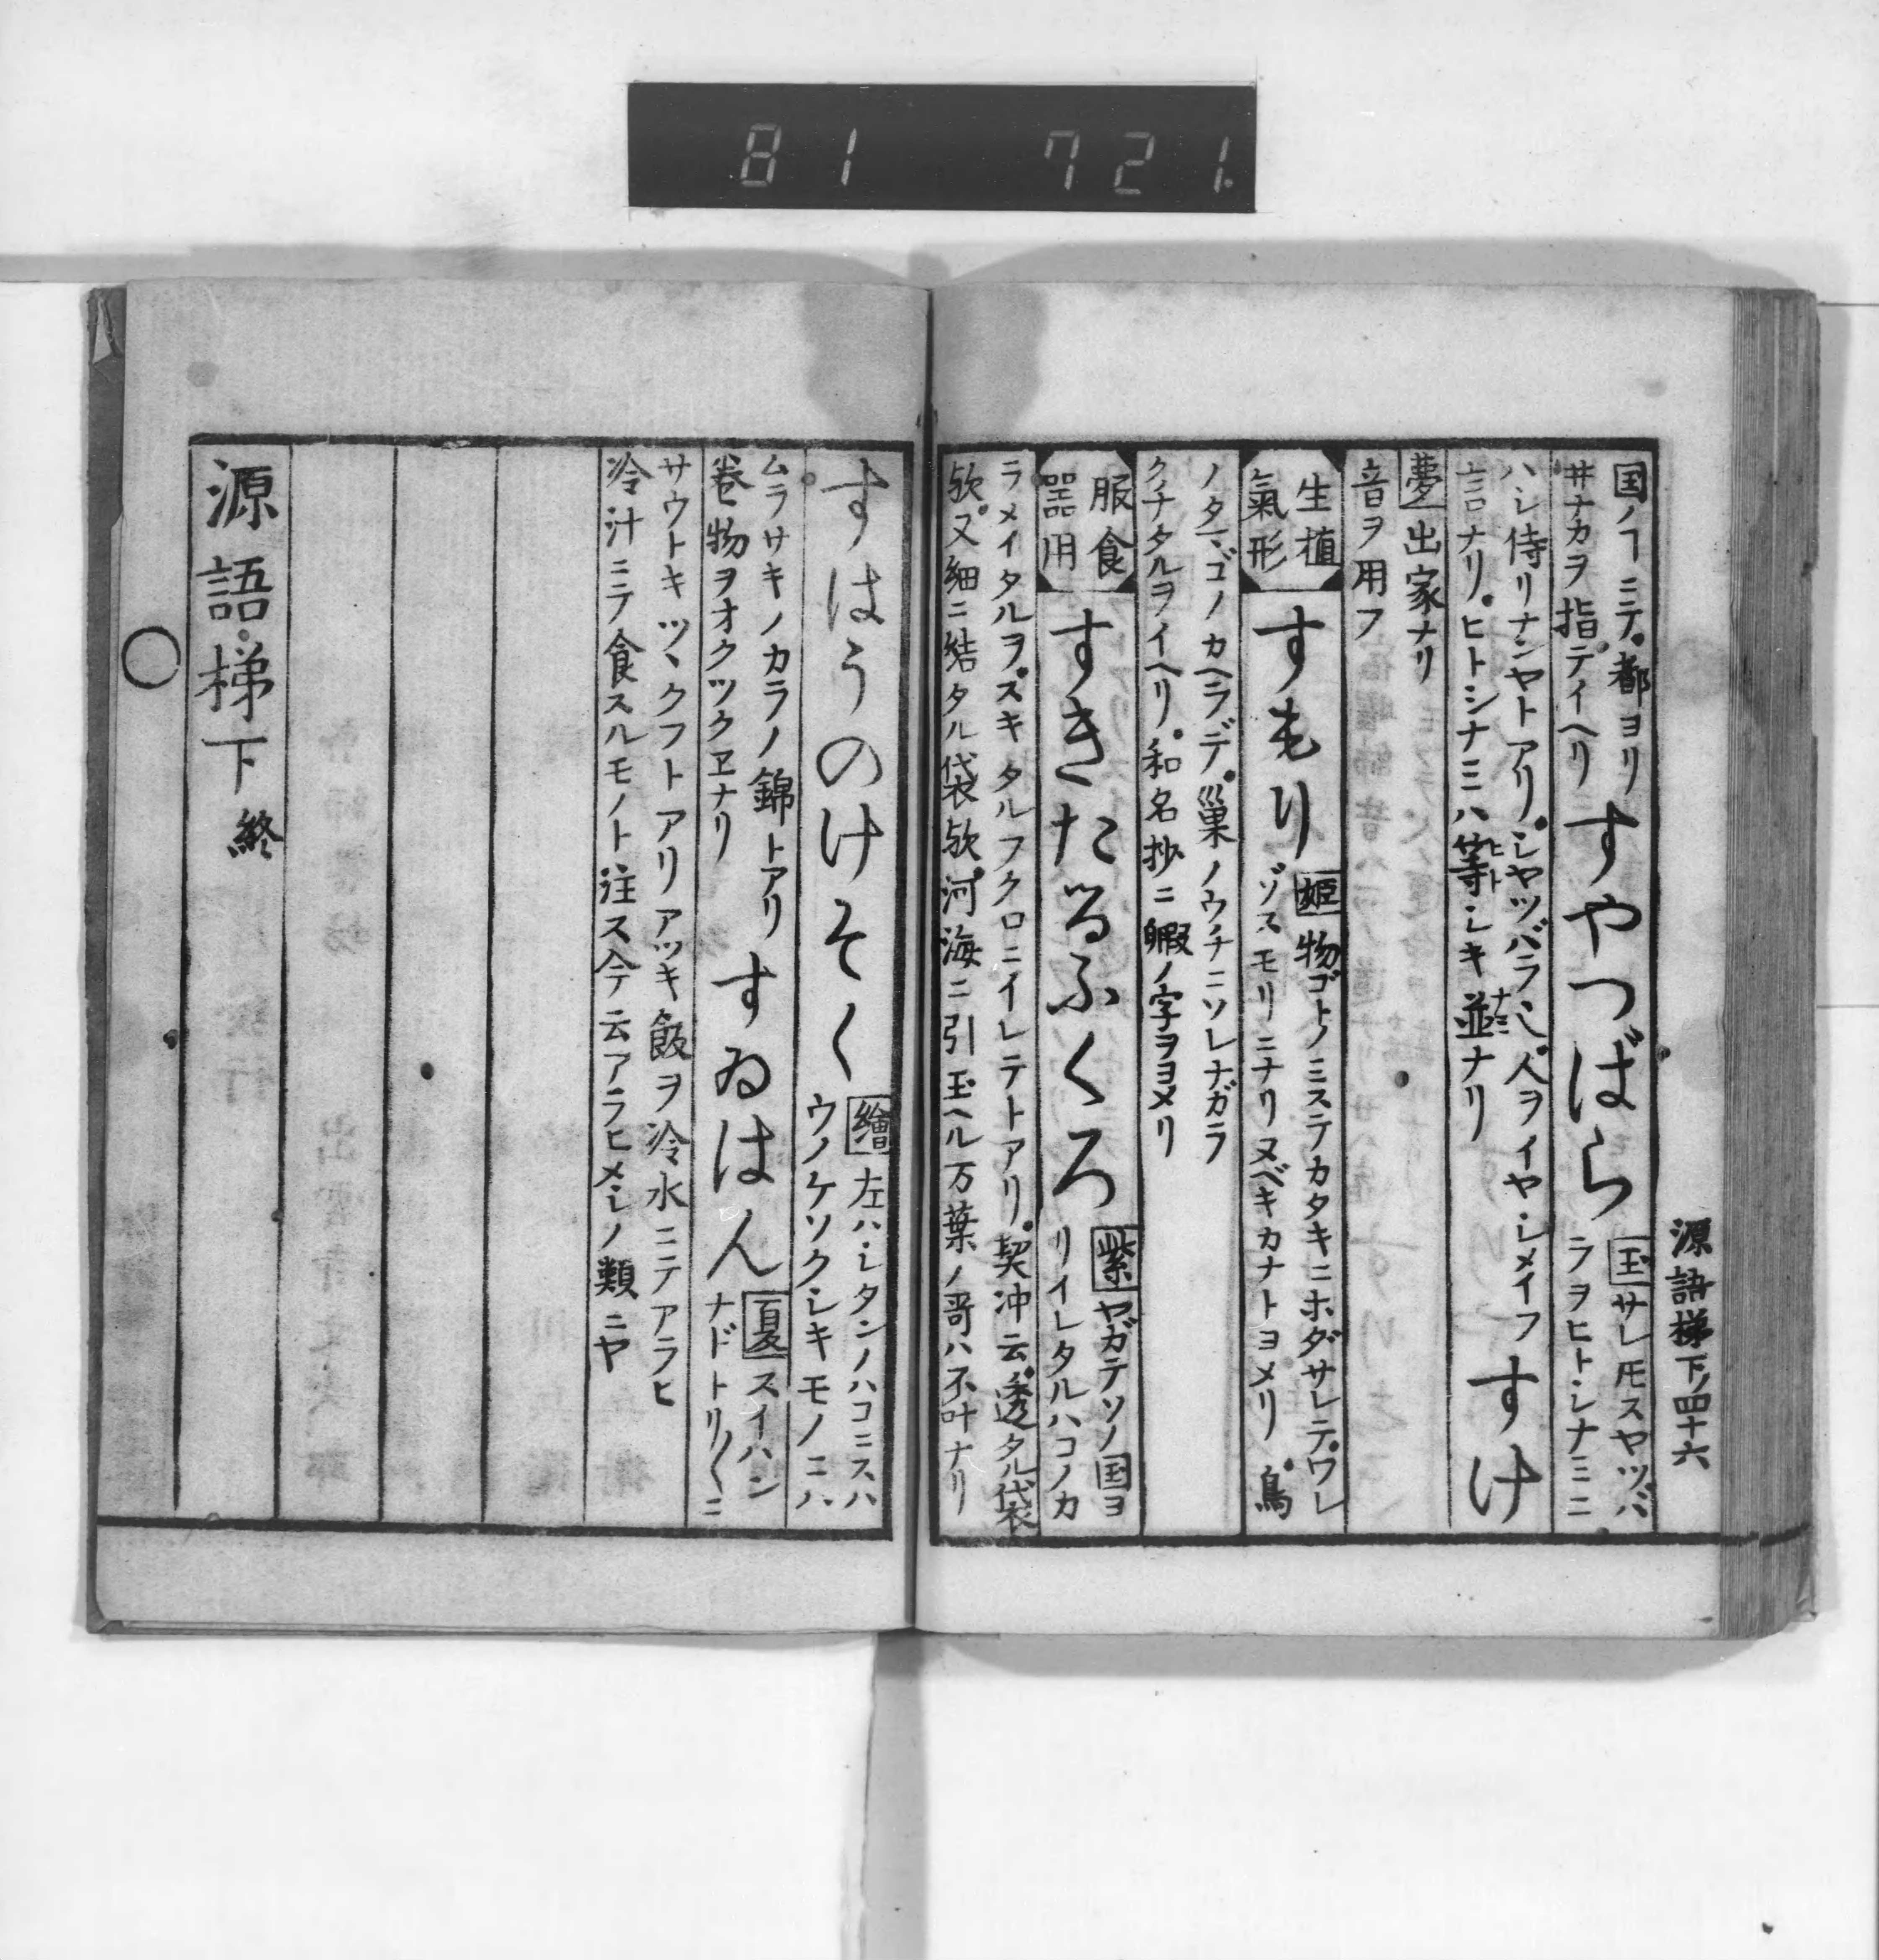 81 721.
源語梯下ノ四十六
国ノヿニテ。都ヨリ
井ナカヲ指テイヘリ
すやつばら
玉サレ𪜈スヤツバ
ラヲヒトシナミニ
ハシ侍リナンヤトアリ。シヤツバラミ。人ヲイヤシメイフ
言ナリ。ヒトシナミハ等シキ並ナリ
すけ
夢出家ナリ
音ヲ用フ
生植
氣形
すもり
姫物ゴトノミステカタキニホダサレテ。ワレ
ゾスモリニナリヌベキカナトヨメリ。鳥
ノタマゴノカヘラデ。巣ノウチニソレナガラ
クチタルヲイヘリ。和名抄ニ毈ノ字ヲヨメリ
服食
器用
すきたるふくろ
紫ヤガテソノ国ヨ
リイレタルハコノカ
ラメイタルヲ。スキタルフクロニイレテトアリ。契沖云。透タル袋
欤。又細ニ結タル袋欤。河海ニ引玉ヘル万葉ノ哥ハ不叶ナリ
すはうのけそく
繪左ハシタンノハコニスハ
ウノケソクシキモノニハ
ムラサキノカラノ錦トアリ
巻物ヲオクツクヱナリ
すゐはん
夏スイハン
ナドトリ〱ニ
サウトキツヽクフトアリアツキ飯ヲ冷水ニテアラヒ
冷汁ニテ食スルモノト注ス今云アラヒメシノ類ニヤ
源語梯下終